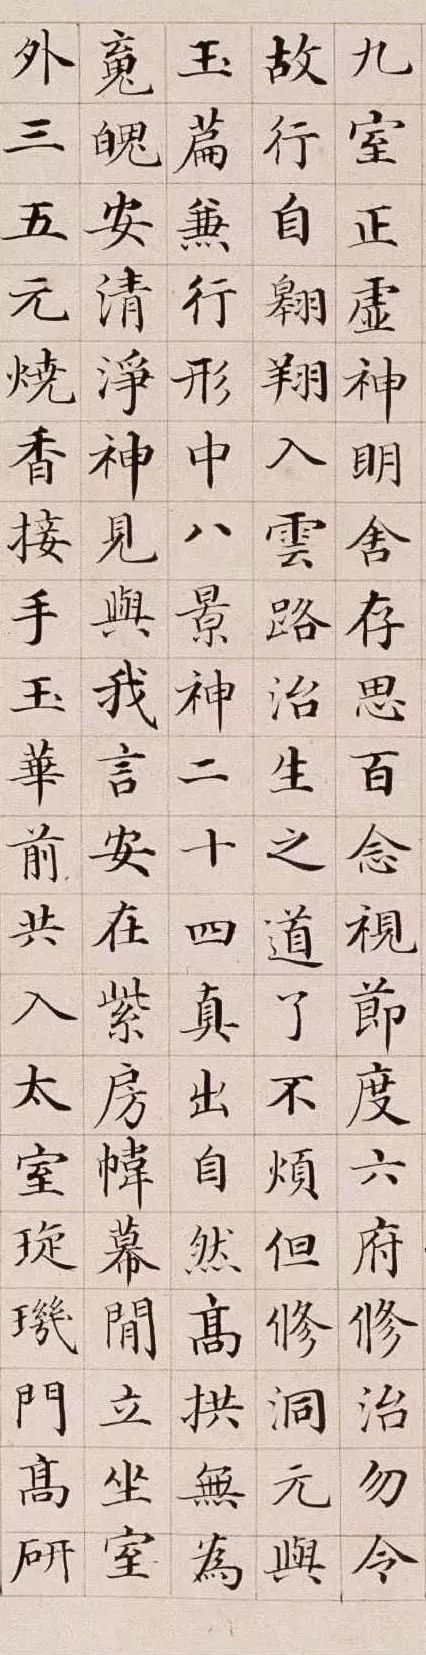 九室正虛神明舍存思百念視節度六府修治勿令
故行自翱翔入雲路治生之道了不煩但修洞元與
玉篇兼行形中八景神二十四真出自然高拱無為
魂魄安清淨神見與我言安在紫房幃幕閒立坐室
外三五元燒香接手玉華前共入太室琁璣門高研